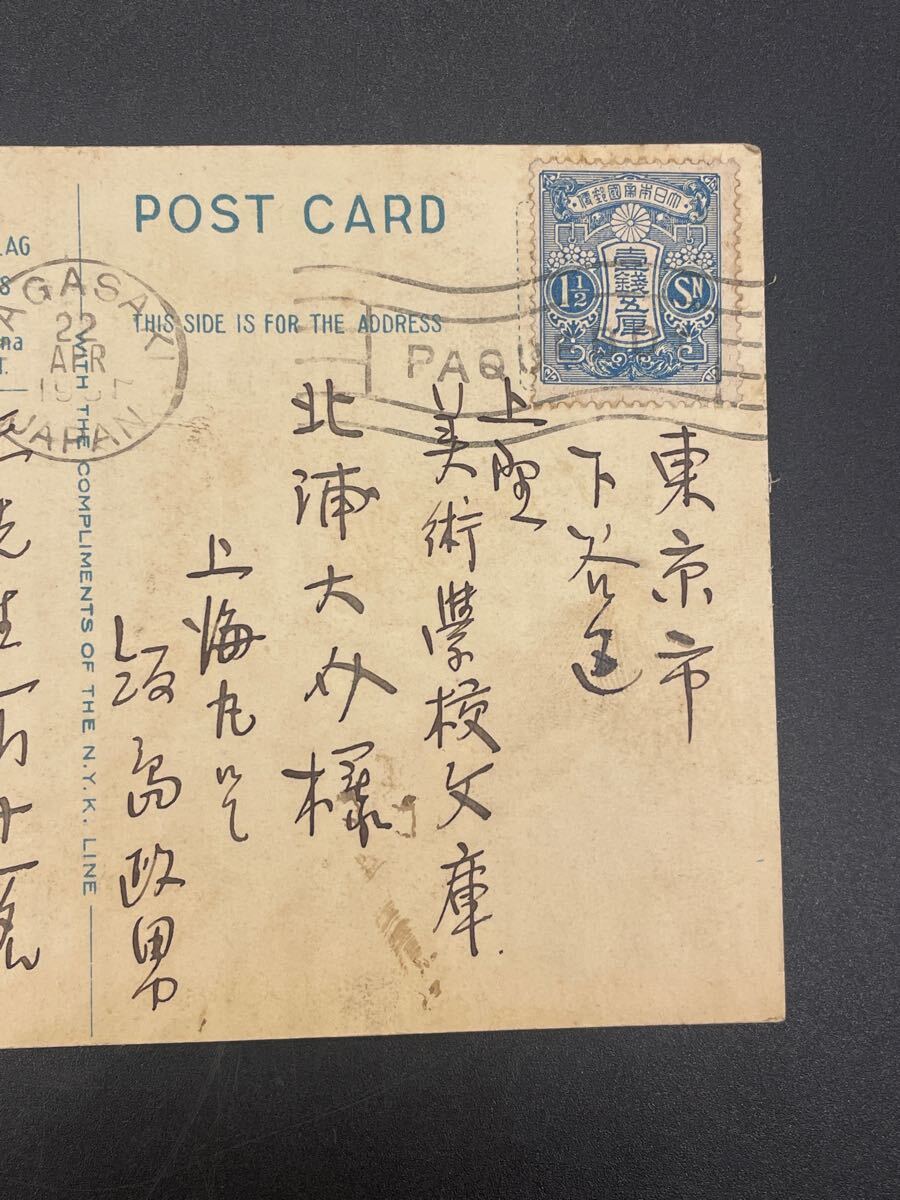 POST CARD
THIS SIDE IS FOR THE ADDRESS
大日本帝國郵便
壹錢五厘
1½
SN
PAQU
NAGASAKI
22
APR
JAPAN
LAG
8
na
T.
WITH THE COMPLIMENTS OF THE N.Y.K. LINE
東京市
下谷区
上野
美術學校文庫
北浦大介様
上海丸ニて
飯島政男
先生